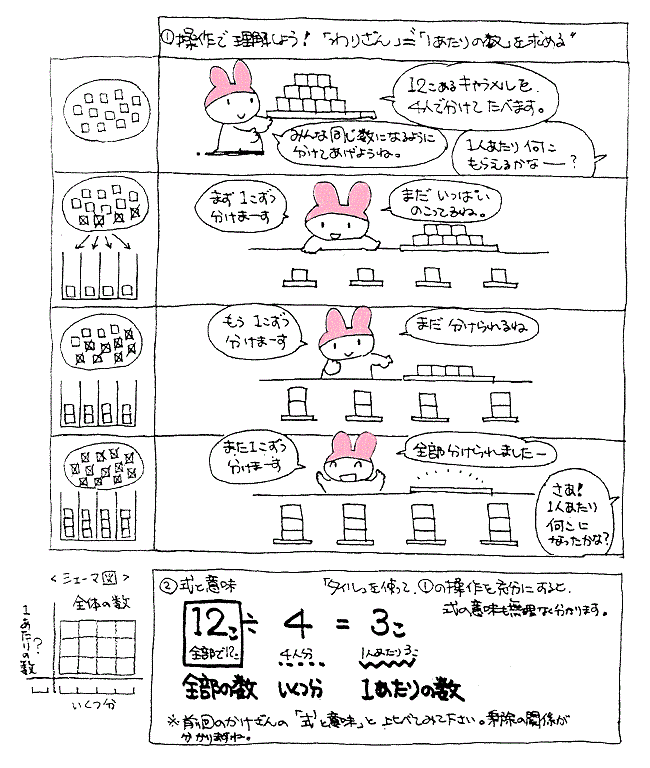 ①操作で理解しよう！「わりざん」＝「1あたりの数」を求める"
12こあるキャラメルを、
4人で分けてたべます。
みんな同じ数になるように
分けてあげようね。
1人あたり何こ
もらえるかなー？
まず1こずつ
分けまーす
まだいっぱい
のこってるね。
もう1こずつ
分けまーす
まだ分けられるね
また1こずつ
分けまーす
全部分けられましたー
さあ！
1人あたり
何こに
なったかな？
<シェーマ図>
全体の数
1あたりの数
?
いくつ分
②式と意味
「タイル」を使って、①の操作を充分にすると、
式の意味も無理なく分かります。
12こ ÷ 4 = 3こ
全部で12こ 4人分 1人あたり3こ
全部の数 いくつ分 1あたりの数
※前回のかけざんの「式と意味」と比べてみて下さい。乗除の関係が
分かりますね。